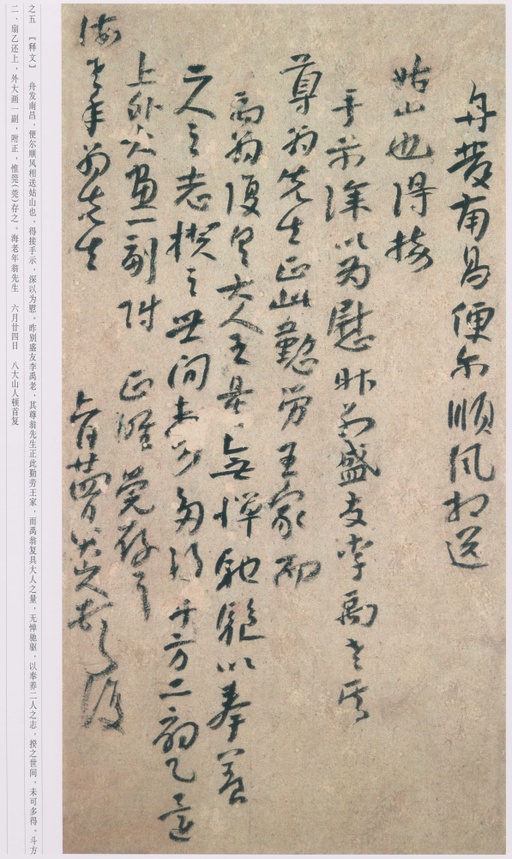 舟發南昌便尔順風相送
姑山也得接
手示深以為慰昨别盛友李禹老其
尊翁先生正此懃勞王家而
禹翁復具大人之量無憚馳驅以奉養
二人之志揆之世间未可多得斗方二扇乙還
上外大畫一副附正惟莞存之
海老年翁先生
六月廿四日八大山人頓首復
之五 〔释文〕 舟发南昌，便尔顺风相送姑山也，得接手示，深以为慰，昨别盛友李禹老，其尊翁先生正此勤劳王家，而禹翁复具大人之量，无惮驰驱，以奉养二人之志，揆之世间，未可多得，斗方
二，扇乙还上，外大画一副，附正，惟莞(莞)存之，海老年翁先生 六月廿四日 八大山人顿首复